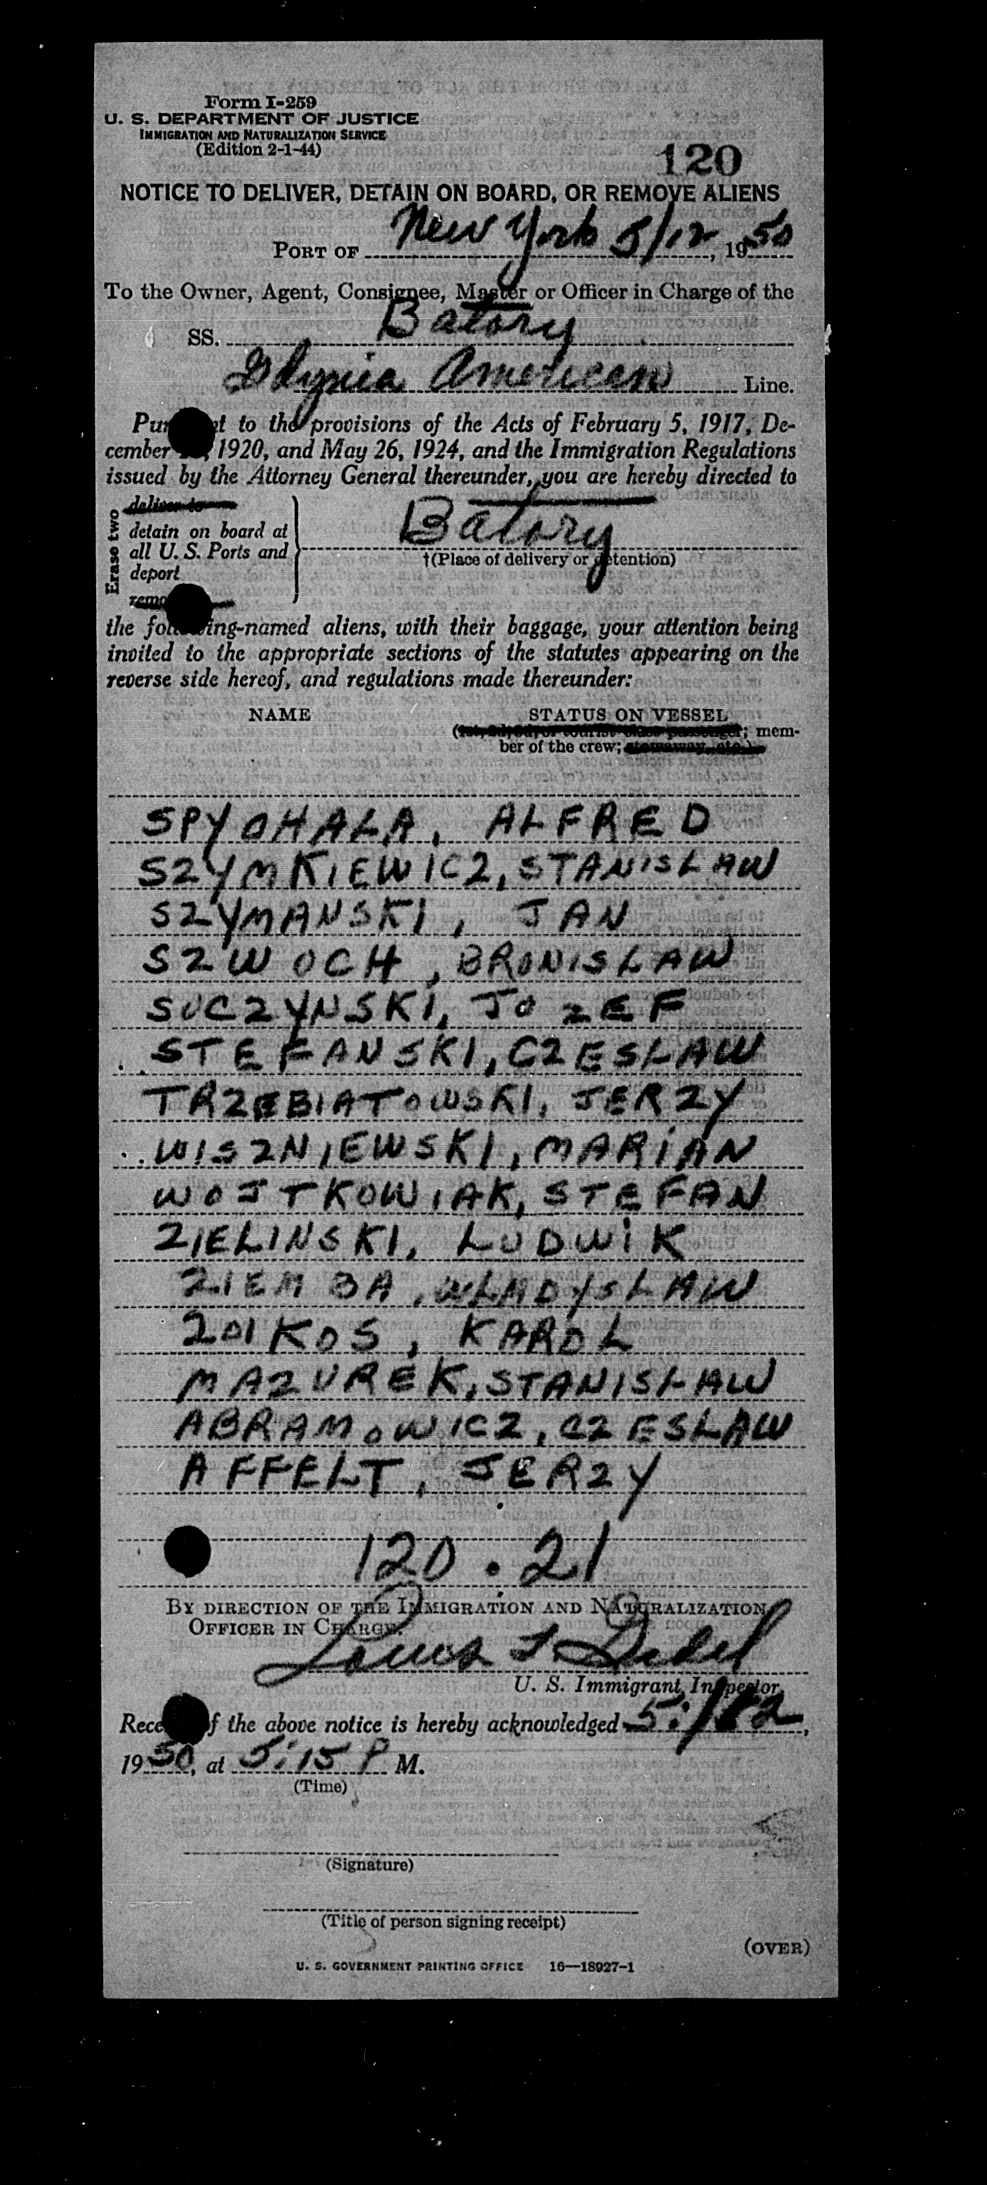 Form I-259
U. S. DEPARTMENT OF JUSTICE
IMMIGRATION AND NATURALIZATION SERVICE
(Edition 2-1-44)
120
NOTICE TO DELIVER, DETAIN ON BOARD, OR REMOVE ALIENS
PORT OF New York 5/12, 1950
To the Owner, Agent, Consignee, Master or Officer in Charge of the
SS. Batory
Gdynia American Line.
Pur t to the provisions of the Acts of February 5, 1917, De-
cember , 1920, and May 26, 1924, and the Immigration Regulations
issued by the Attorney General thereunder, you are hereby directed to
Erase two
deliver to
detain on board at
all U. S. Ports and
deport
remo
Batory
†(Place of delivery or detention)
the following-named aliens, with their baggage, your attention being
invited to the appropriate sections of the statutes appearing on the
reverse side hereof, and regulations made thereunder:
NAME STATUS ON VESSEL
(1st, 2d, 3d, or tourist class passenger; mem-
ber of the crew; stowaway, etc.)
SPYOHALA, ALFRED
SZYMKIEWICZ, STANISLAW
SZYMANSKI, JAN
SZWOCH, BRONISLAW
SUCZYNSKI, JOZEF
STEFANSKI, CZESLAW
TRZEBIATOWSKI, JERZY
WISZNIEWSKI, MARIAN
WOJTKOWIAK, STEFAN
ZIELINSKI, LUDWIK
ZIEMBA, WLADYSLAW
ZOIKOS, KAROL
MAZUREK, STANISLAW
ABRAMOWICZ, CZESLAW
AFFELT, JERZY
120 . 21
BY DIRECTION OF THE IMMIGRATION AND NATURALIZATION
OFFICER IN CHARGE.
Louis F
U. S. Immigrant Inspector.
Rece f the above notice is hereby acknowledged 5/12,
1950, at 5:15 P M.
(Time)
(Signature)
(Title of person signing receipt)
(OVER)
U. S. GOVERNMENT PRINTING OFFICE 16—18927-1